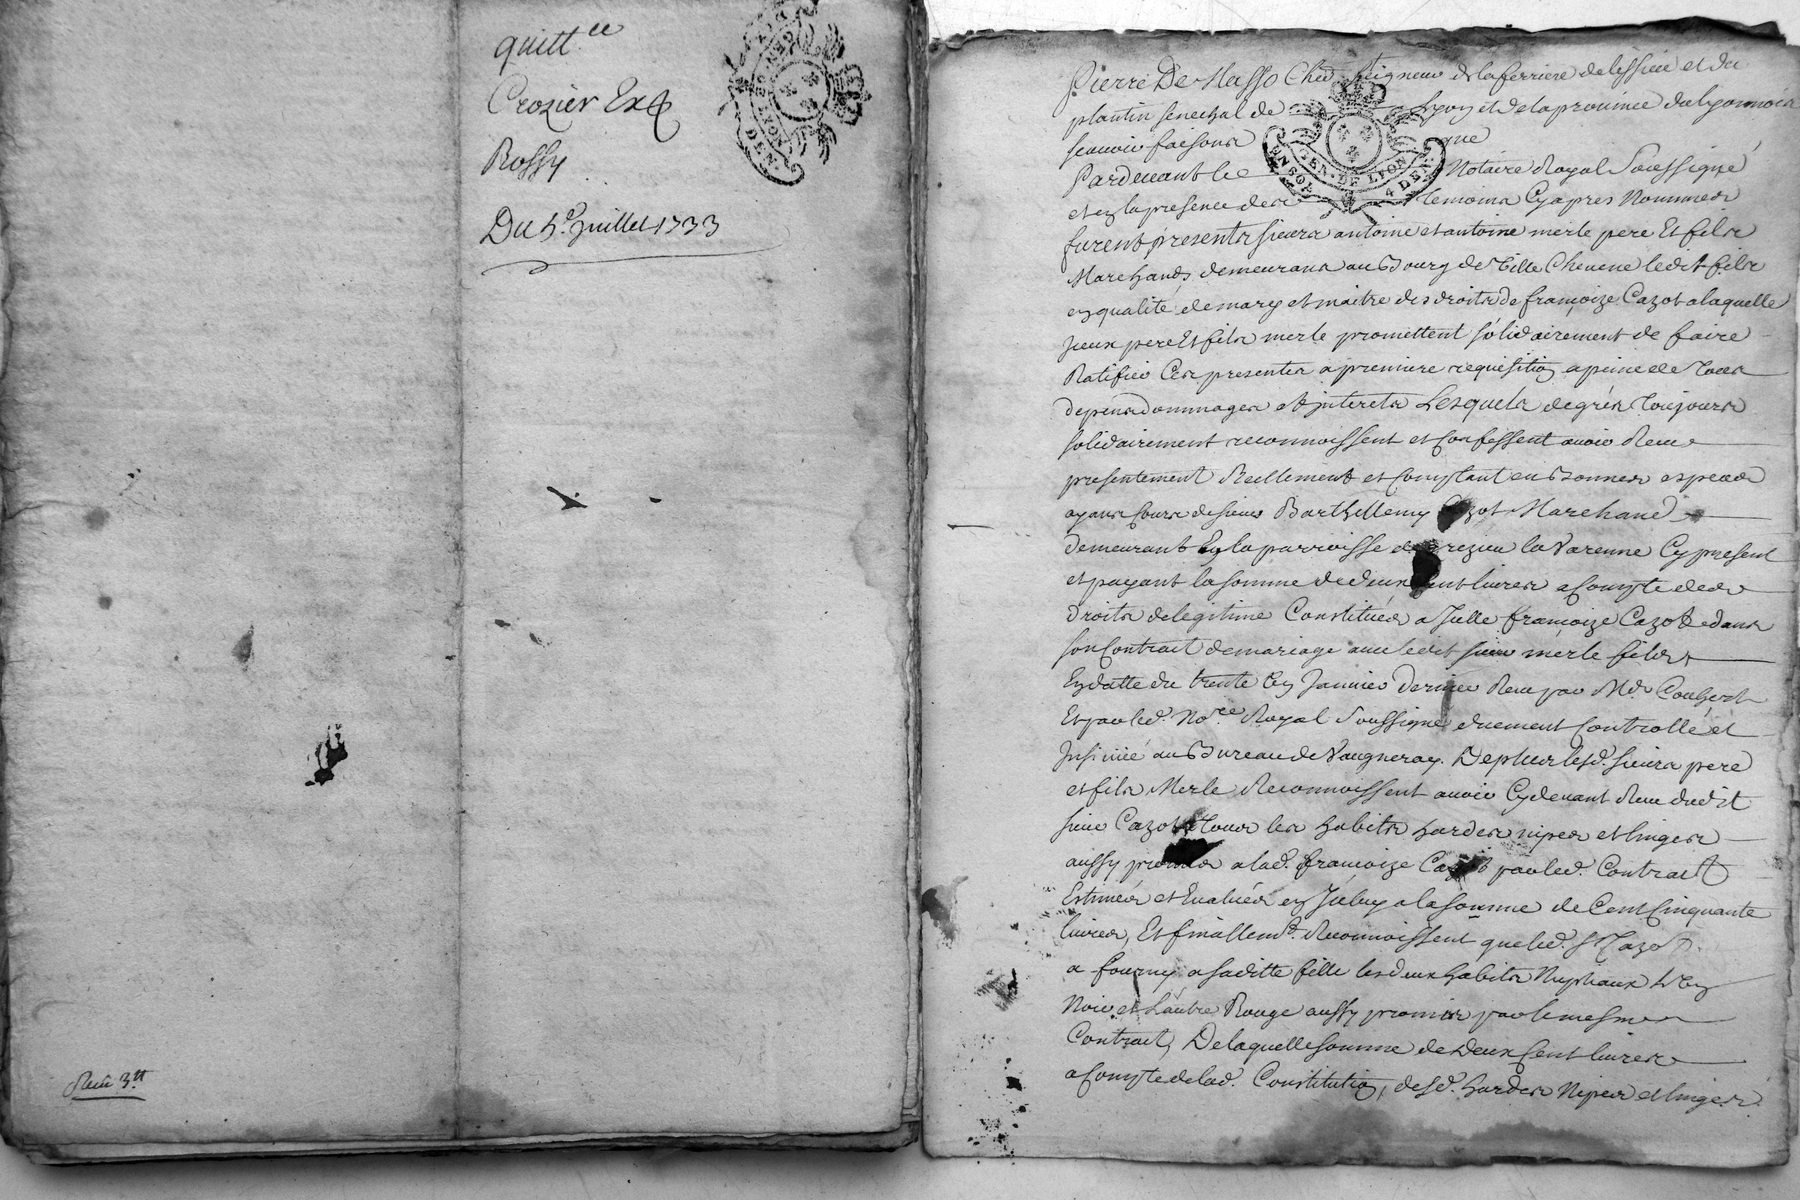 quitt.ce
Crozier Ex
Rossy
Du 5.e Juillet 1733
GEN. DE LYON
DEN.
Receu 3.tt
Pierre De Masso Cher. Seigneur de la ferriere de lissieu et du
plantin senechal de Lyon et de la province du lyonnois
scavoir faisons que
EN SOL GEN. DE LION 4 DEN
Pardevant le Notaire Royal Soussigné
et en la presence des temoins Cy apres Nommes
furent presents sieurs antoine et antoine merle pere Et fils
Marchands demeurans au Bourg de Ville Cheneve ledit fils
en qualité de mary et maitre des droits de françoize Cazot a laquelle
sieux pere Et fils merle promettent sólidairement de faire
Ratifier Ces presentes a premiere requisition a peine de tous
depens dommages et interets Lesquels de grés toujours
solidairement reconnoissent et Confessent avoir Receu
presentement Reellement et Comptant en Bonnes especes
ayans Cours de sieur Barthellemy Cazot Marchand
demeurant En la parroisse de Grezieu la Varenne Cy present
et payant la somme de deux Cent livres a Compte des
droits de legitime Constitués a Jelle françoize Cazot dans
son Contrait de mariage avec ledit sieur merle fils
En datte du trente En Janvier dernier Receu par Me.
Et par led. No.re Royal Soussigné duement Controllé et
Insinué au Bureau de Vaugneray. De plus lesd. sieurs pere
et fils Merle Reconnoissent avoir Cy devant Receu dudit
sieur Cazot tous les habits hardes nipes et linges
aussy promis a lad. françoize Cazot par led. Contrait
Estimés et Evalués en Jceluy a la somme de Cent Cinquante
livres, Et finallemt. Reconnoissent que led. Sr Cazot
a fourny a saditte fille les deux habits Nuptiaux L'un
Noir et L'autre Rouge aussy promis par le mesme
Contrait, De laquelle somme de Deux Cent livres
a Compte de lad. Constitution, desd. hardes Nipes et linges